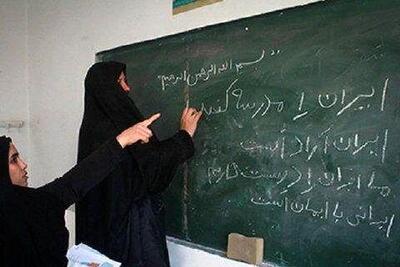 بسم الله الرحمن الرحیم
ایران را مدرسه
ایران آزاد است
ما ایران را دوست داریم
ایرانی با ایمان است